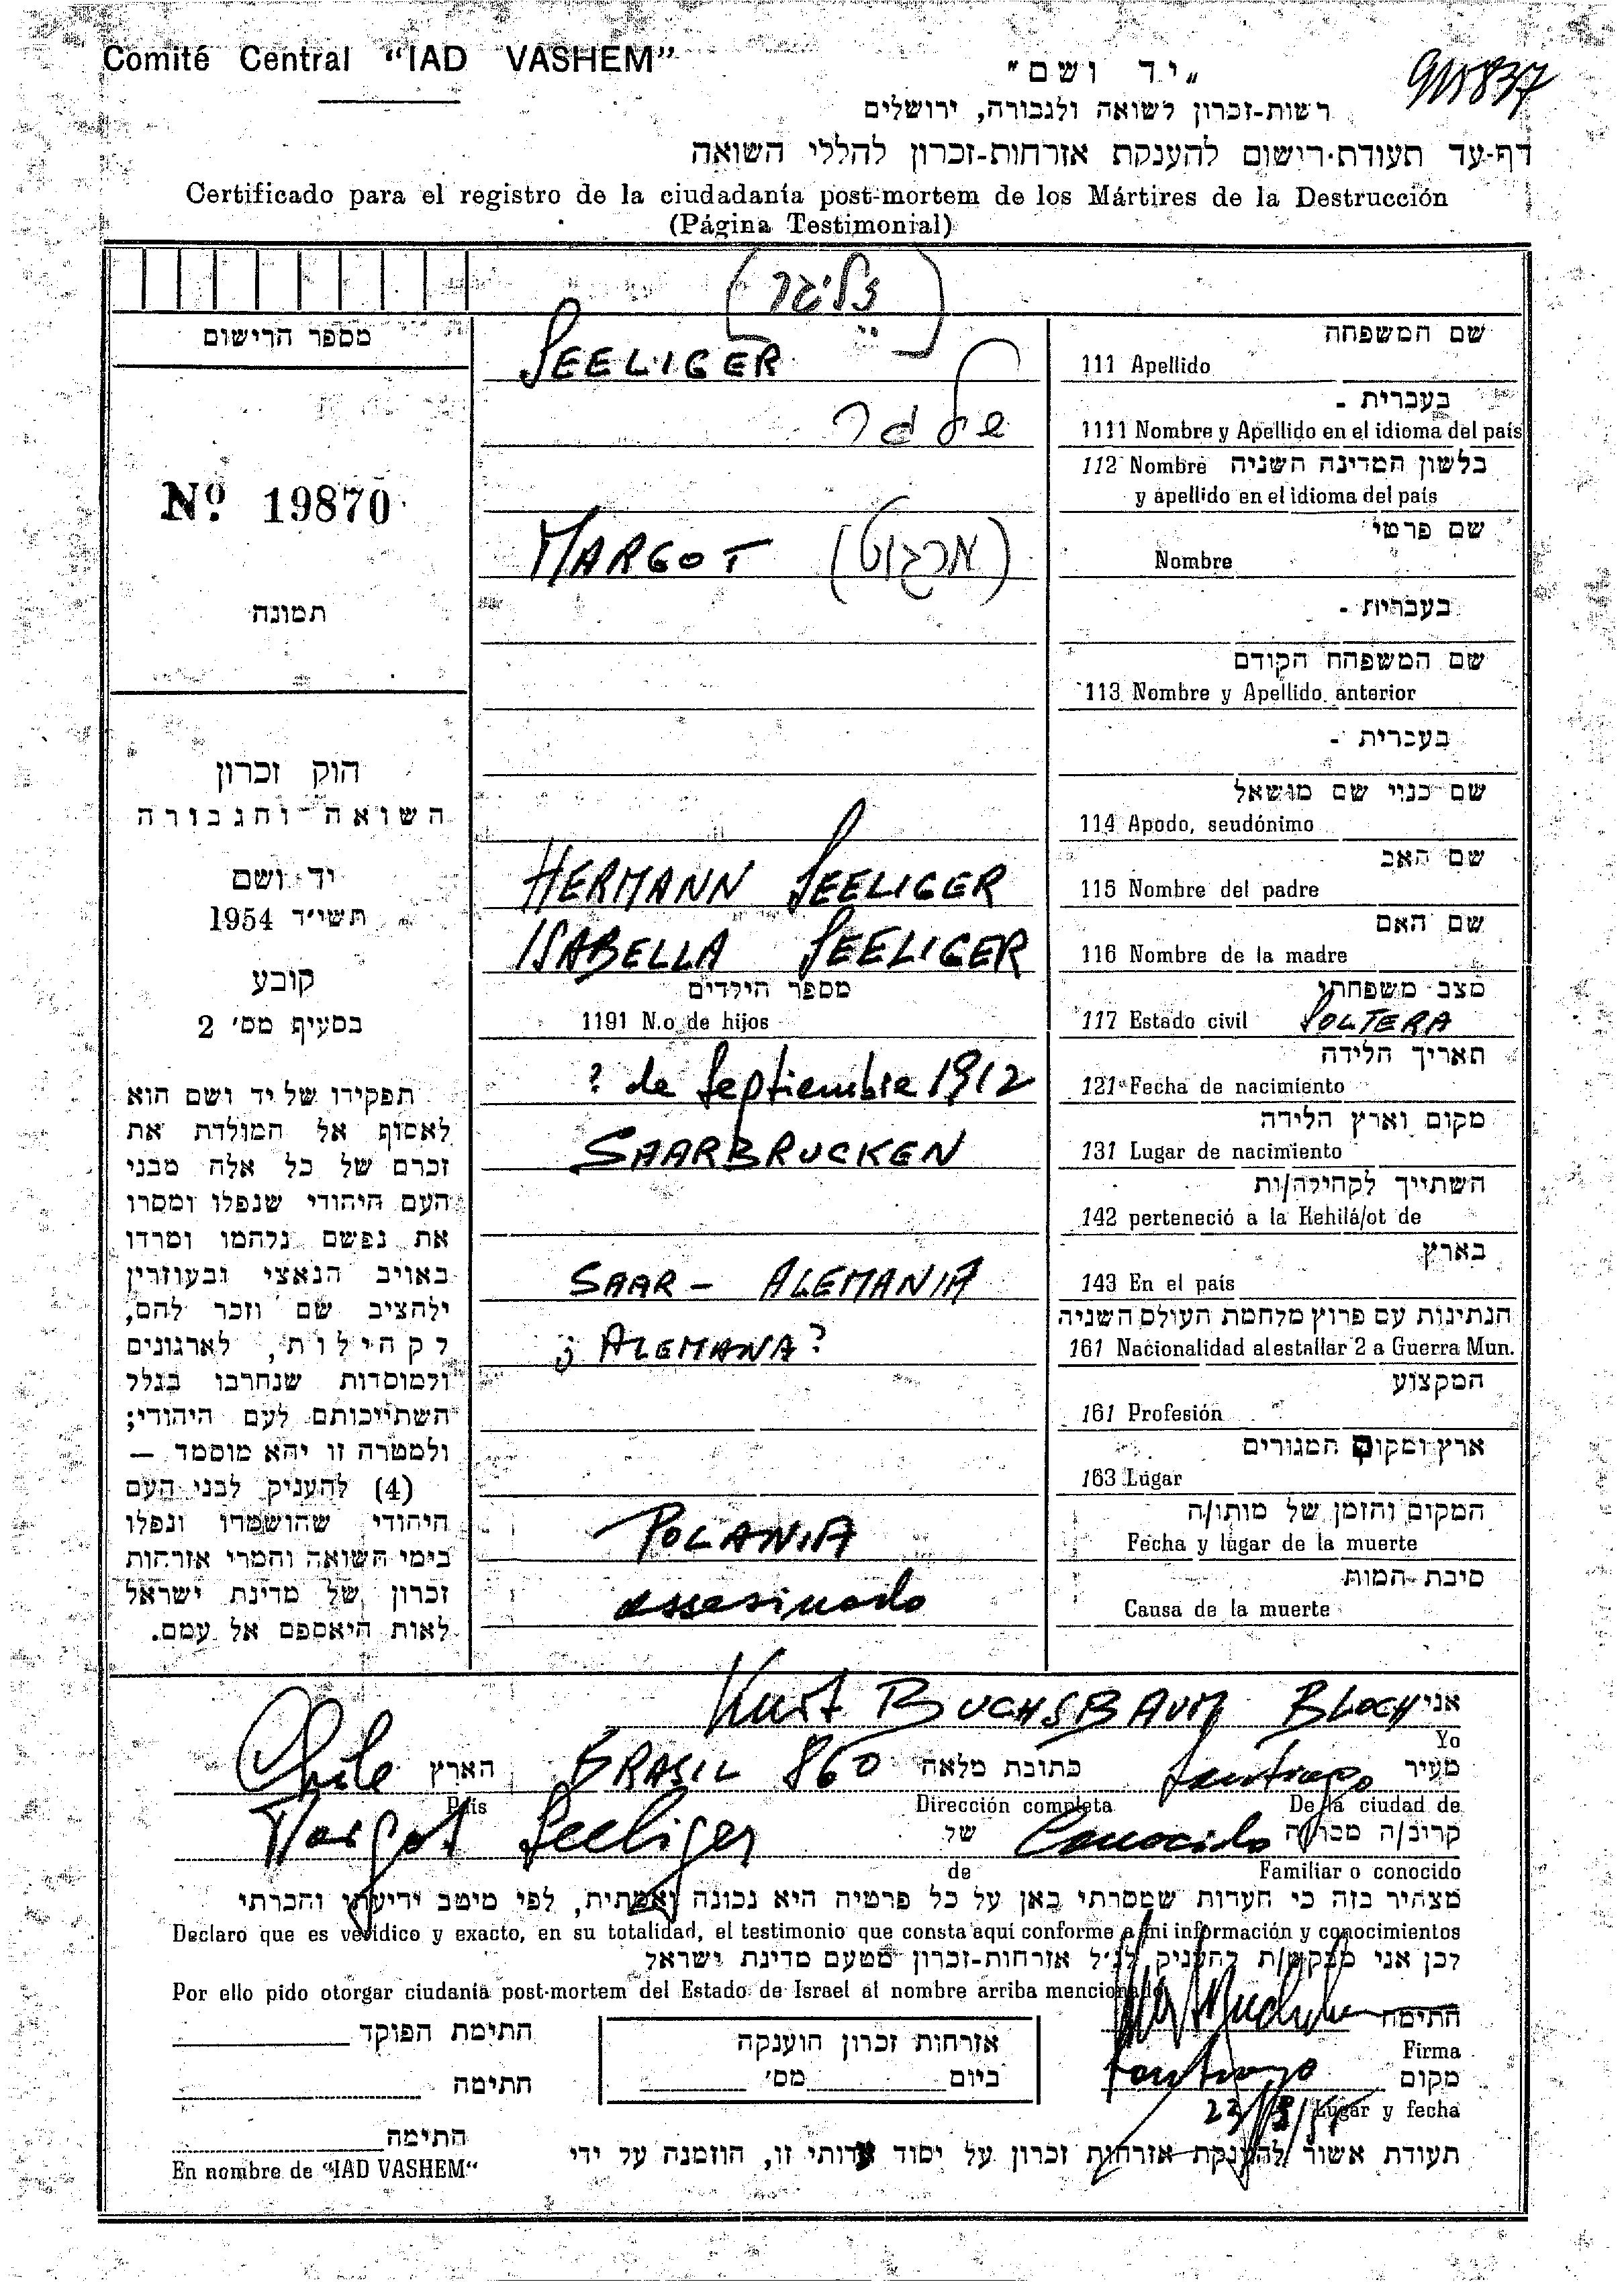 Comité Central "IAD VASHEM"
"יד ושם"
רשות-זכרון לשואה ולגבורה, ירושלים
דף-עד תעודת-רישום להענקת אזרחות-זכרון להללי השואה
Certificado para el registro de la ciudadanía post-mortem de los Mártires de la Destrucción
(Página Testimonial)
מספר הרישום
Nº 19870
תמונה
חוק זכרון
השואה והגבורה
יד ושם
תשי"ד 1954
קובע
בסעיף מס' 2
תפקידו של יד ושם הוא
לאסוף אל המולדת את
זכרם של כל אלה מבני
העם היהודי שנפלו ומסרו
את נפשם נלחמו ומרדו
באויב הנאצי ובעוזריו
ולהציב שם וזכר להם,
לקהילות, לארגונים
ולמוסדות שנחרבו בגלל
השתייכותם לעם היהודי;
ולמטרה זו יהא מוסמך —
(4) להעניק לבני העם
היהודי שהושמדו ונפלו
בימי השואה והמרי אזרחות
זכרון של מדינת ישראל
לאות היאספם אל עמם.
שם המשפחה
111 Apellido SEELIGER (זליגר)
בעברית -
1111 Nombre y Apellido en el idioma del país
112 Nombre בלשון המדינה השניה
y apellido en el idioma del país
שם פרטי
Nombre MARGOT (מרגוט)
בעברית -
שם המשפחה הקודם
113 Nombre y Apellido anterior
בעברית -
שם כנוי שם מושאל
114 Apodo, seudónimo
שם האב
115 Nombre del padre HERMANN SEELIGER
שם האם
116 Nombre de la madre ISABELLA SEELIGER
מצב משפחתי
117 Estado civil SOLTERA
מספר הילדים
1191 N.o de hijos
תאריך הלידה
121 Fecha de nacimiento ? de Septiembre 1912
מקום וארץ הלידה
131 Lugar de nacimiento SAARBRUCKEN
השתייך לקהילה/ות
142 perteneció a la Kehilá/ot de
בארץ
143 En el país SAAR - ALEMANIA
הנתינות עם פרוץ מלחמת העולם השניה
161 Nacionalidad al estallar 2 a Guerra Mun. ¿ ALEMANA ?
המקצוע
161 Profesión
ארץ ומקום המגורים
163 Lugar
המקום והזמן של מותו/ה
Fecha y lugar de la muerte POLANIA
סיבת המות
Causa de la muerte assesinado
אני Kurt BUCHSBAUM BLOCH
Yo
מעיר Santiago כתובת מלאה BRASIL 860 הארץ Chile
De la ciudad de Dirección completa País
קרוב/ה מכר/ה Conocido של Margot Seeliger
Familiar o conocido de
מצהיר בזה כי העדות שמסרתי כאן על כל פרטיה היא נכונה ואמתית, לפי מיטב ידיעתי והכרתי
Declaro que es verídico y exacto, en su totalidad, el testimonio que consta aquí conforme a mi información y conocimientos
לכן אני מבקש/ת להעניק לנ"ל אזרחות-זכרון מטעם מדינת ישראל
Por ello pido otorgar ciudanía post-mortem del Estado de Israel al nombre arriba mencionado
חתימה
Firma
מקום Santiago
Lugar y fecha
אזרחות זכרון הוענקה
ביום מס'
חתימת הפוקד
חתימה
חתימה
En nombre de "IAD VASHEM"
תעודת אשור להענקת אזרחות זכרון על יסוד עדותי זו, הוזמנה על ידי